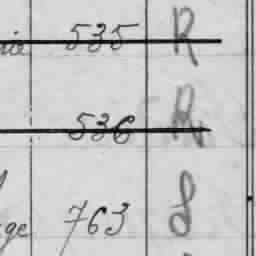 535 R
536 R
ge 763 S